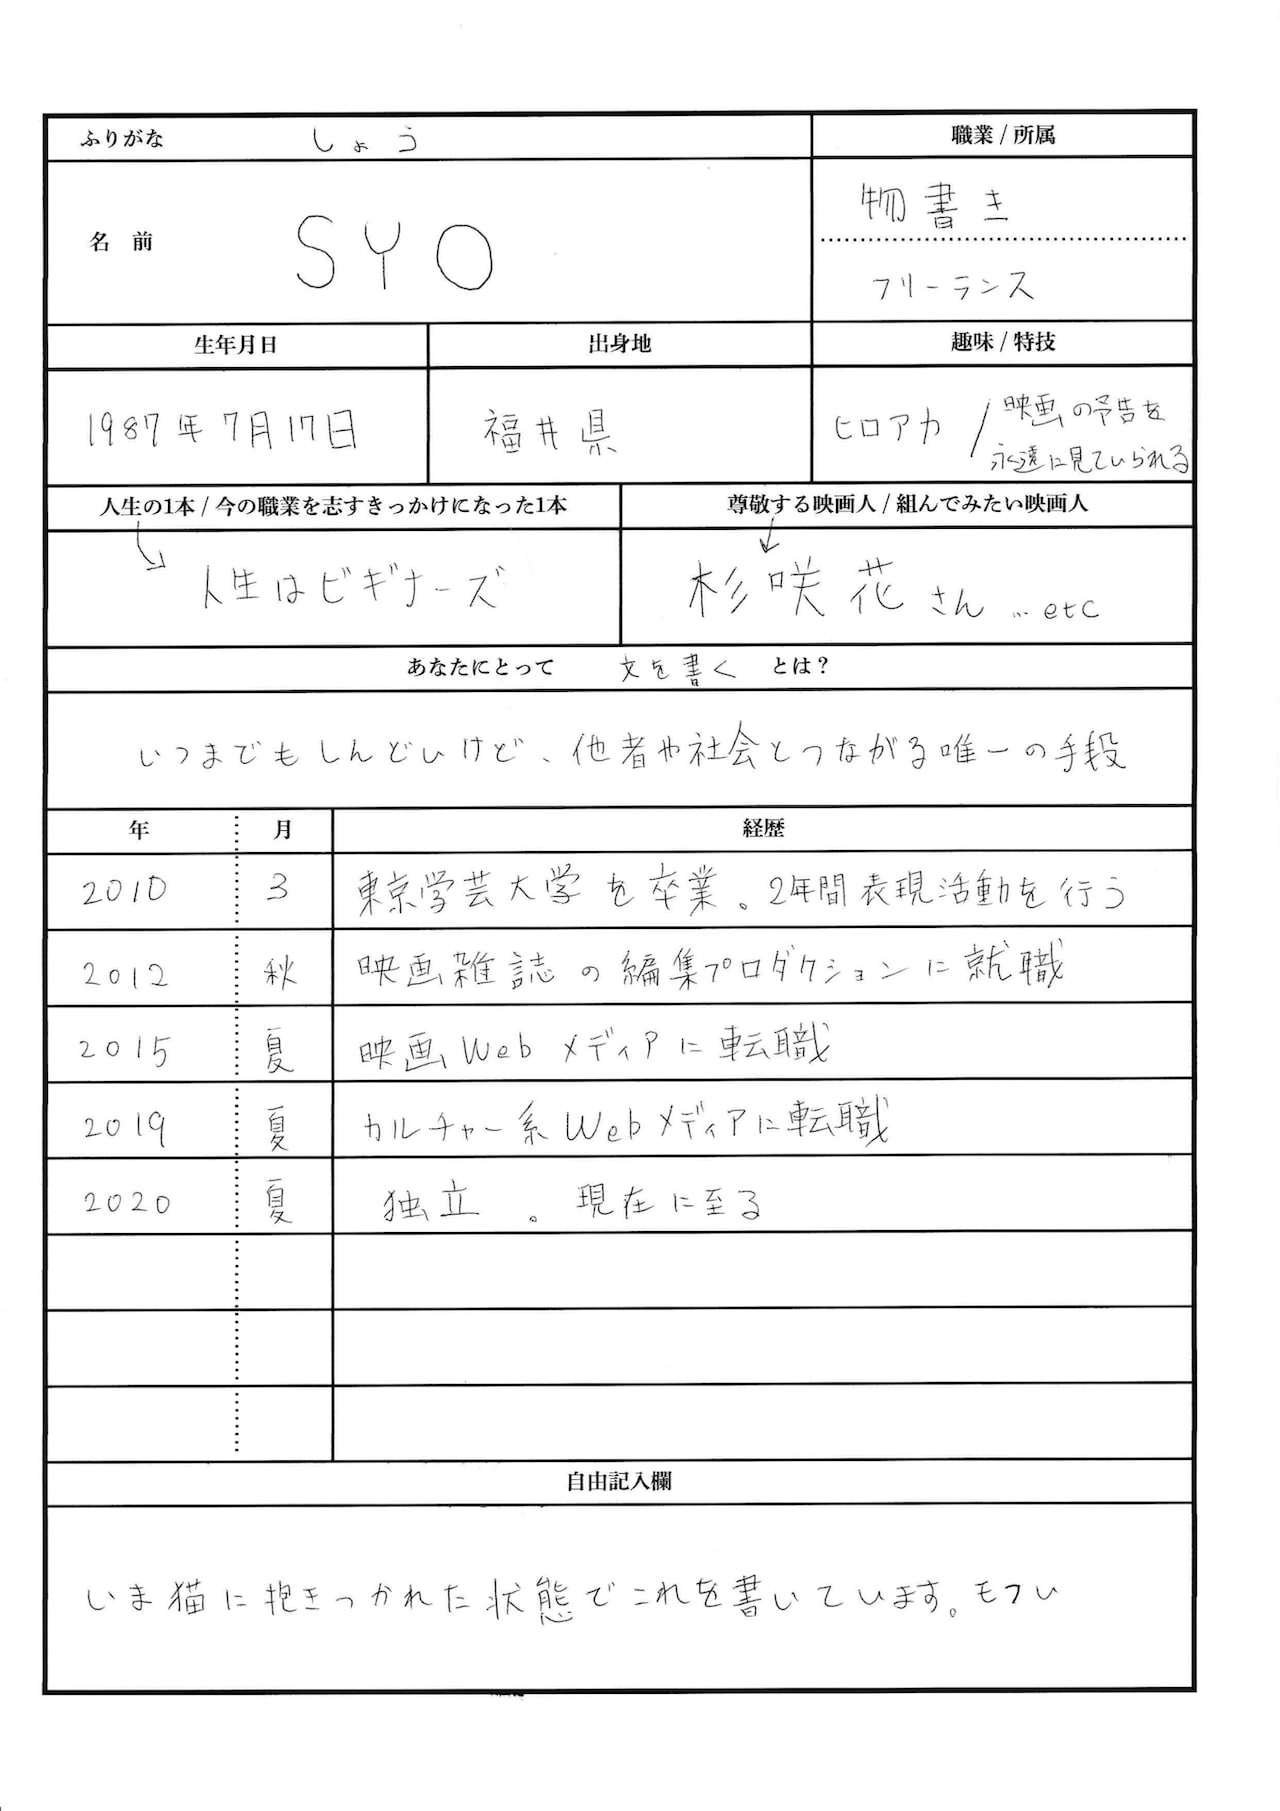 ふりがな しょう
職業 / 所属
名 前 SYO
物書き
フリーランス
生年月日 出身地 趣味 / 特技
1987年7月17日 福井県 ヒロアカ / 映画の予告を
永遠に見ていられる
人生の1本 / 今の職業を志すきっかけになった1本 尊敬する映画人 / 組んでみたい映画人
人生はビギナーズ 杉咲花さん …etc
あなたにとって 文を書く とは？
いつまでもしんどいけど、他者や社会とつながる唯一の手段
年 月 経歴
2010 3 東京学芸大学を卒業。2年間表現活動を行う
2012 秋 映画雑誌の編集プロダクションに就職
2015 夏 映画Webメディアに転職
2019 夏 カルチャー系Webメディアに転職
2020 夏 独立。現在に至る
自由記入欄
いま猫に抱きつかれた状態でこれを書いています。モフい